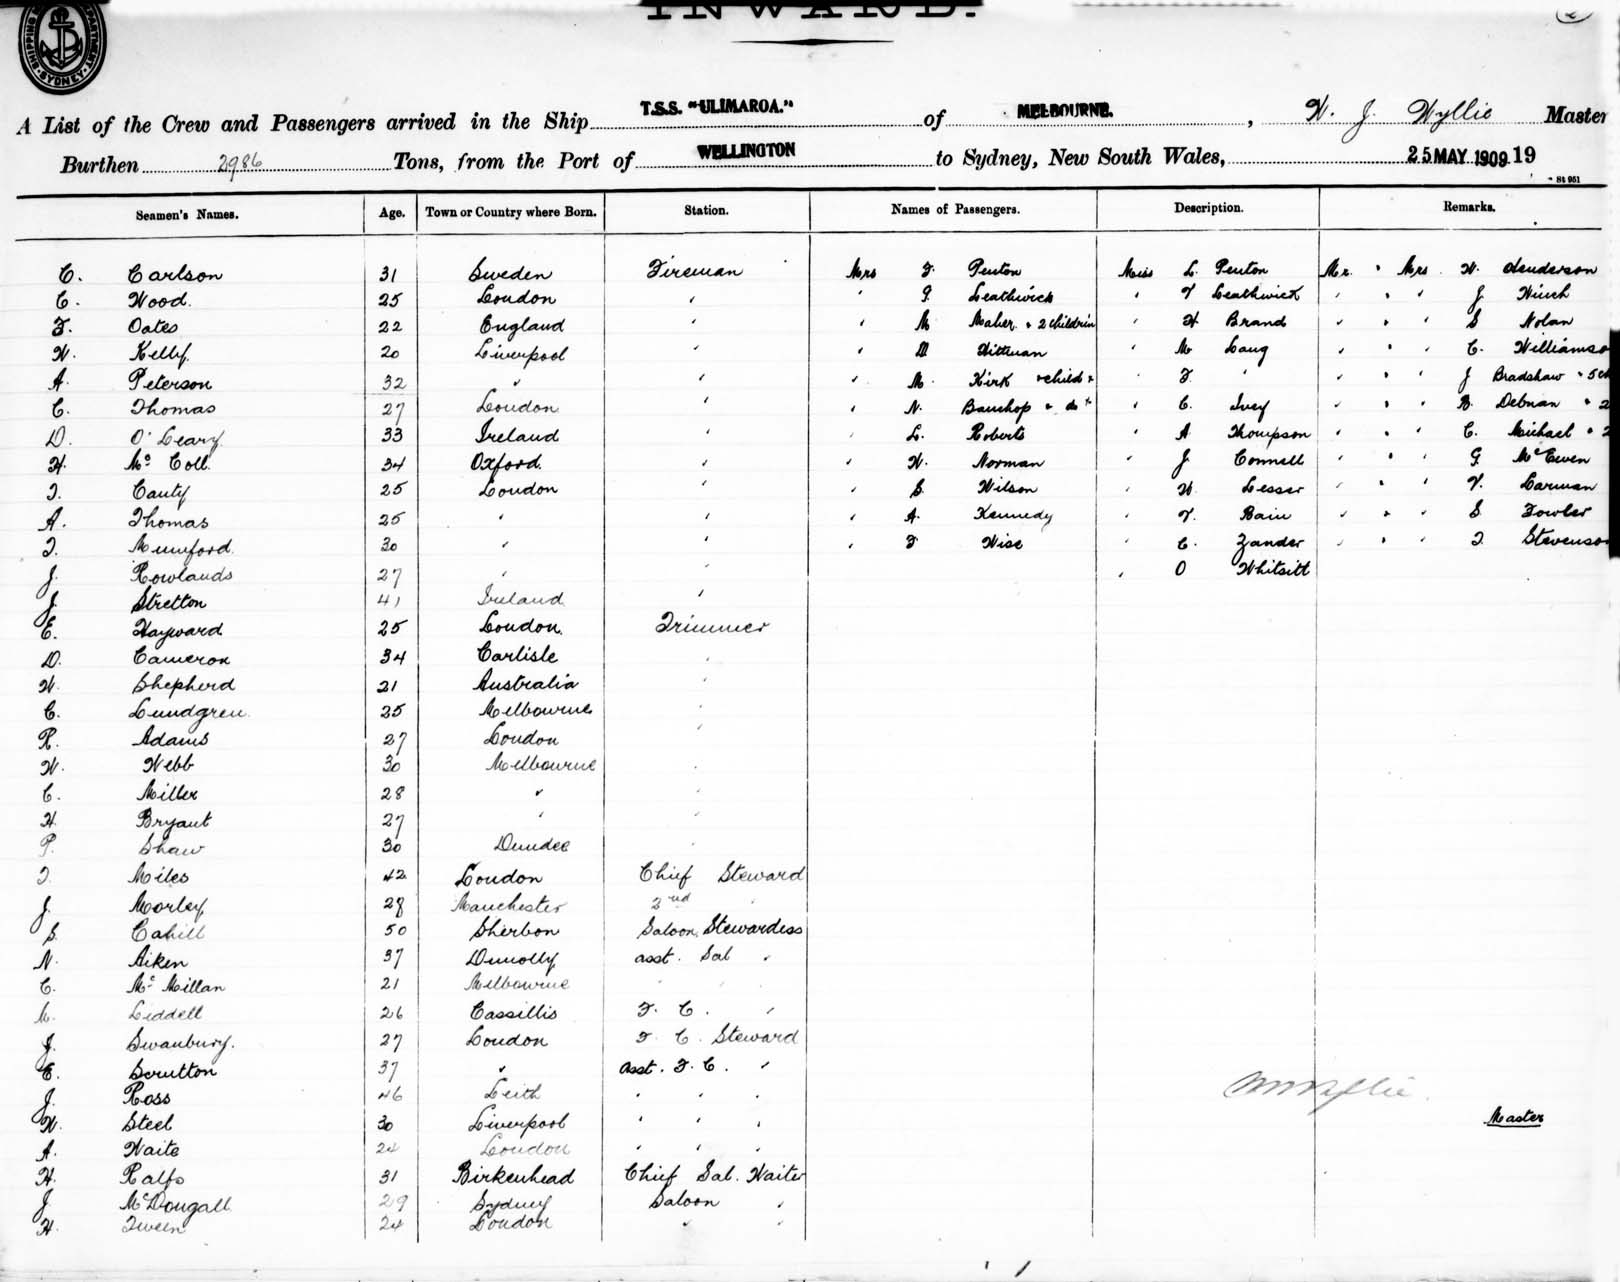 INWARD.
SHIPPING
SYDNEY
A List of the Crew and Passengers arrived in the Ship T.S.S. "ULIMAROA." of MELBOURNE. , W. J. Wyllie Master
Burthen 2986 Tons, from the Port of WELLINGTON to Sydney, New South Wales, 25 MAY 1909 19
St 951
Seamen's Names. Age. Town or Country where Born. Station. Names of Passengers. Description. Remarks.
C. Carlson 31 Sweden Fireman Mrs F. Penton Miss L. Penton Mr. " Mrs. W. Henderson
C. Wood. 25 London " " G. Leathwick " V Leathwick " " " J Winch
F. Oates 22 England " " M Maher " 2 children " H Brand " " " S Nolan
W. Kelly. 20 Liverpool " " D Wittman " M Lang " " " C. Williamso
A. Peterson 32 " " " M. Kirk " child " " F. " " " " J Bradshaw " 5 ch
C. Thomas 27 London " " N. Bauchop " do " " C. Ivey " " " B. Debnan " 2
D. O'Leary 33 Ireland " " L. Roberts " A Thompson " " " C. Michael " 2
H. Mc Coll. 34 Oxford. " " W. Norman " J Connell " " " G. McEwen
T. Canty 25 London " " S. Wilson " W. Lesser " " " V. Carman
A. Thomas 25 " " " A. Kennedy " V. Bain " " " S Fowler
T. Mumford. 30 " " " F Wise " C. Zander " " " T. Stevenso
J. Rowlands 27 " " " O Whitsitt
J. Stretton 41 Ireland "
E. Hayward 25 London. Trimmer
D. Cameron 34 Carlisle "
W. Shepherd 21 Australia "
C. Lundgren. 25 Melbourne "
R. Adams 27 London "
W. Webb 30 Melbourne "
C. Miller 28 " "
H. Bryant 27 " "
P. Shaw 30 Dundee "
T. Miles 42 London Chief Steward
J. Morley 28 Manchester 2nd "
S. Cahill 50 Sherbon Saloon Stewardess
N. Aiken 37 Dunolly asst. Sal "
C. Mc Millan 21 Melbourne " " "
M. Liddell 26 Cassillis F. C. "
J. Swanbury. 27 London F. C. Steward
E. Scrutton 37 " asst. F. C. "
J. Ross 46 Leith " " "
W. Steel 30 Liverpool " " "
A. Waite 24 London " " "
H. Ralfs 31 Birkenhead Chief Sal. Waiter
J. McDougall 29 Sydney Saloon "
H. Tween 24 London " "
Wyllie.
Master